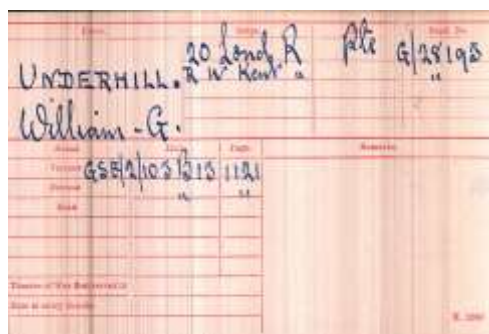 Corps. Rank Regtl. No.
20 Lond R Pte G/28195
UNDERHILL. R W Kent " "
William - G.
Medal Roll. Page. Remarks.
Victory GSB/2/103B13 1121
British " "
Star
Theatre of War first served in
Date of entry therein